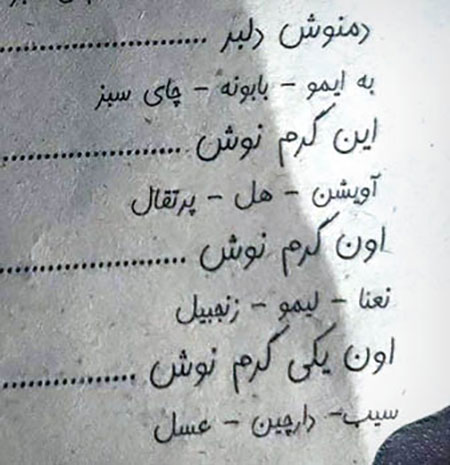 دمنوش دلبر ........................
به ایمو - بابونه - چای سبز
این گرم نوش ........................
آویشن - هل - پرتقال
اون گرم نوش ........................
نعنا - لیمو - زنجبیل
اون یکی گرم نوش ................
سیب - دارچین - عسل